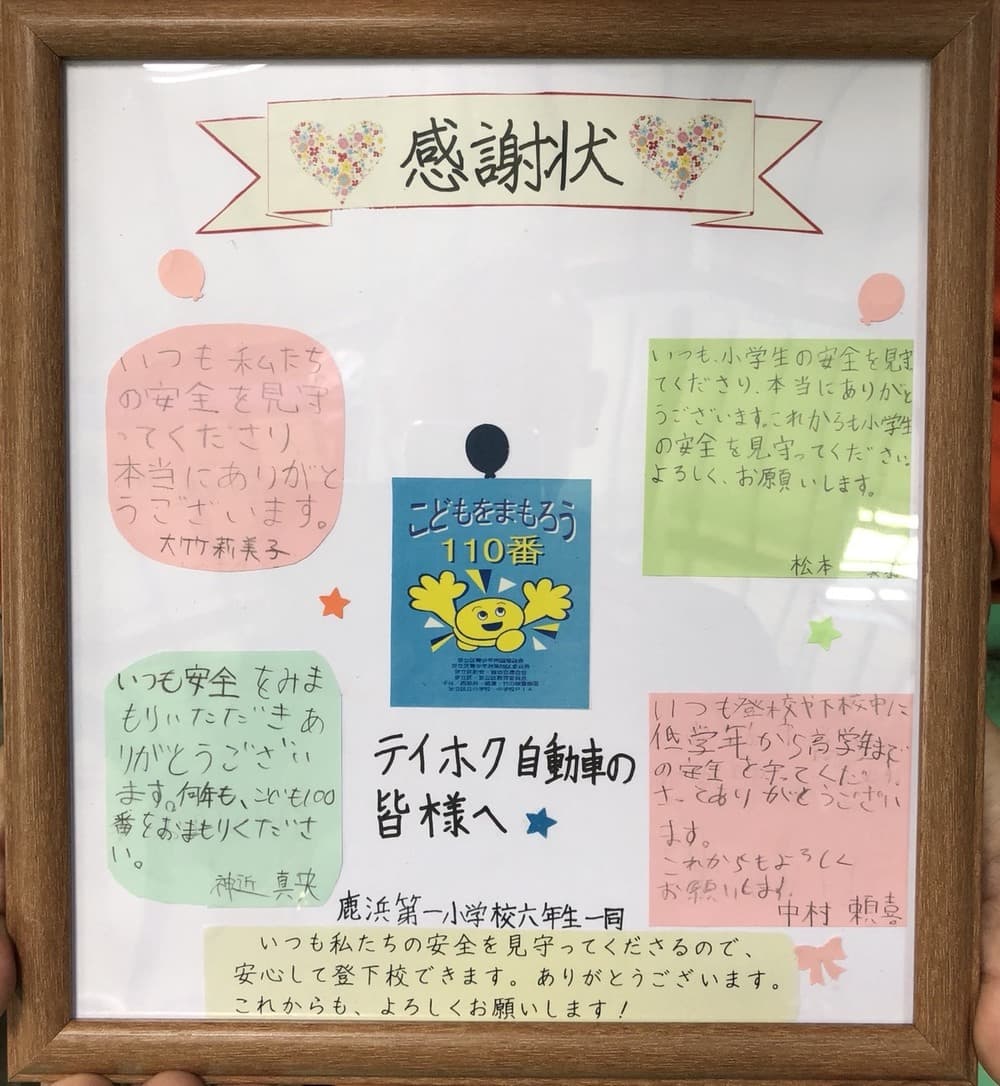 感謝状
いつも私たち
の安全を見守
ってくださり
本当にありがと
うございます。
大竹莉美子
いつも、小学生の安全を見守
てくださり、本当にありがと
うございます。これからも小学生
の安全を見守ってください。
よろしく、お願いします。
松本
こどもをまもろう
110番
いつも安全をみま
もりいただきあ
りがとうござい
ます。何年も、こども100
番をおまもりくださ
い。
神近 真央
いつも登校や下校中に
低学年から高学年まで
の安全を守ってくだ
さってありがとうござい
ます。
これからもよろしく
お願いします。
中村 頼喜
テイホク自動車の
皆様へ
鹿浜第一小学校六年生一同
いつも私たちの安全を見守ってくださるので、
安心して登下校できます。ありがとうございます。
これからも、よろしくお願いします！